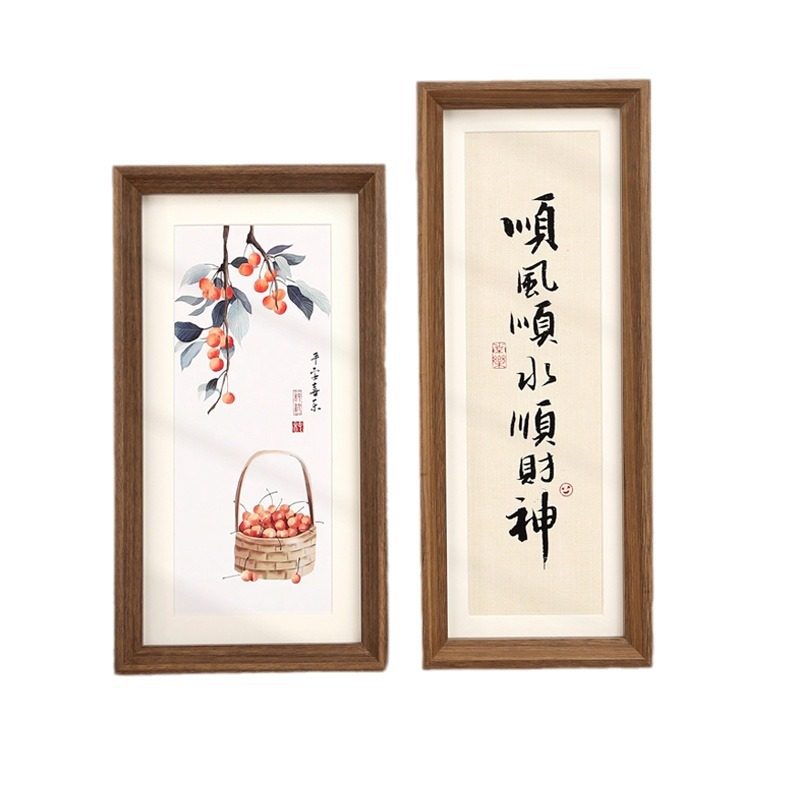 平安喜乐
順風順水順財神